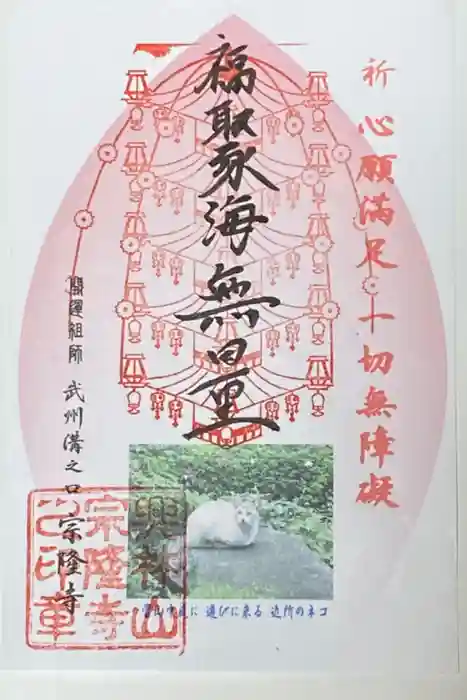 祈心願満足一切無障礙
福聚海無量
開運祖師 武州溝之口 宗隆寺
興林山
宗隆寺
之印章
当山中庭に 遊びに来る 近所のネコ